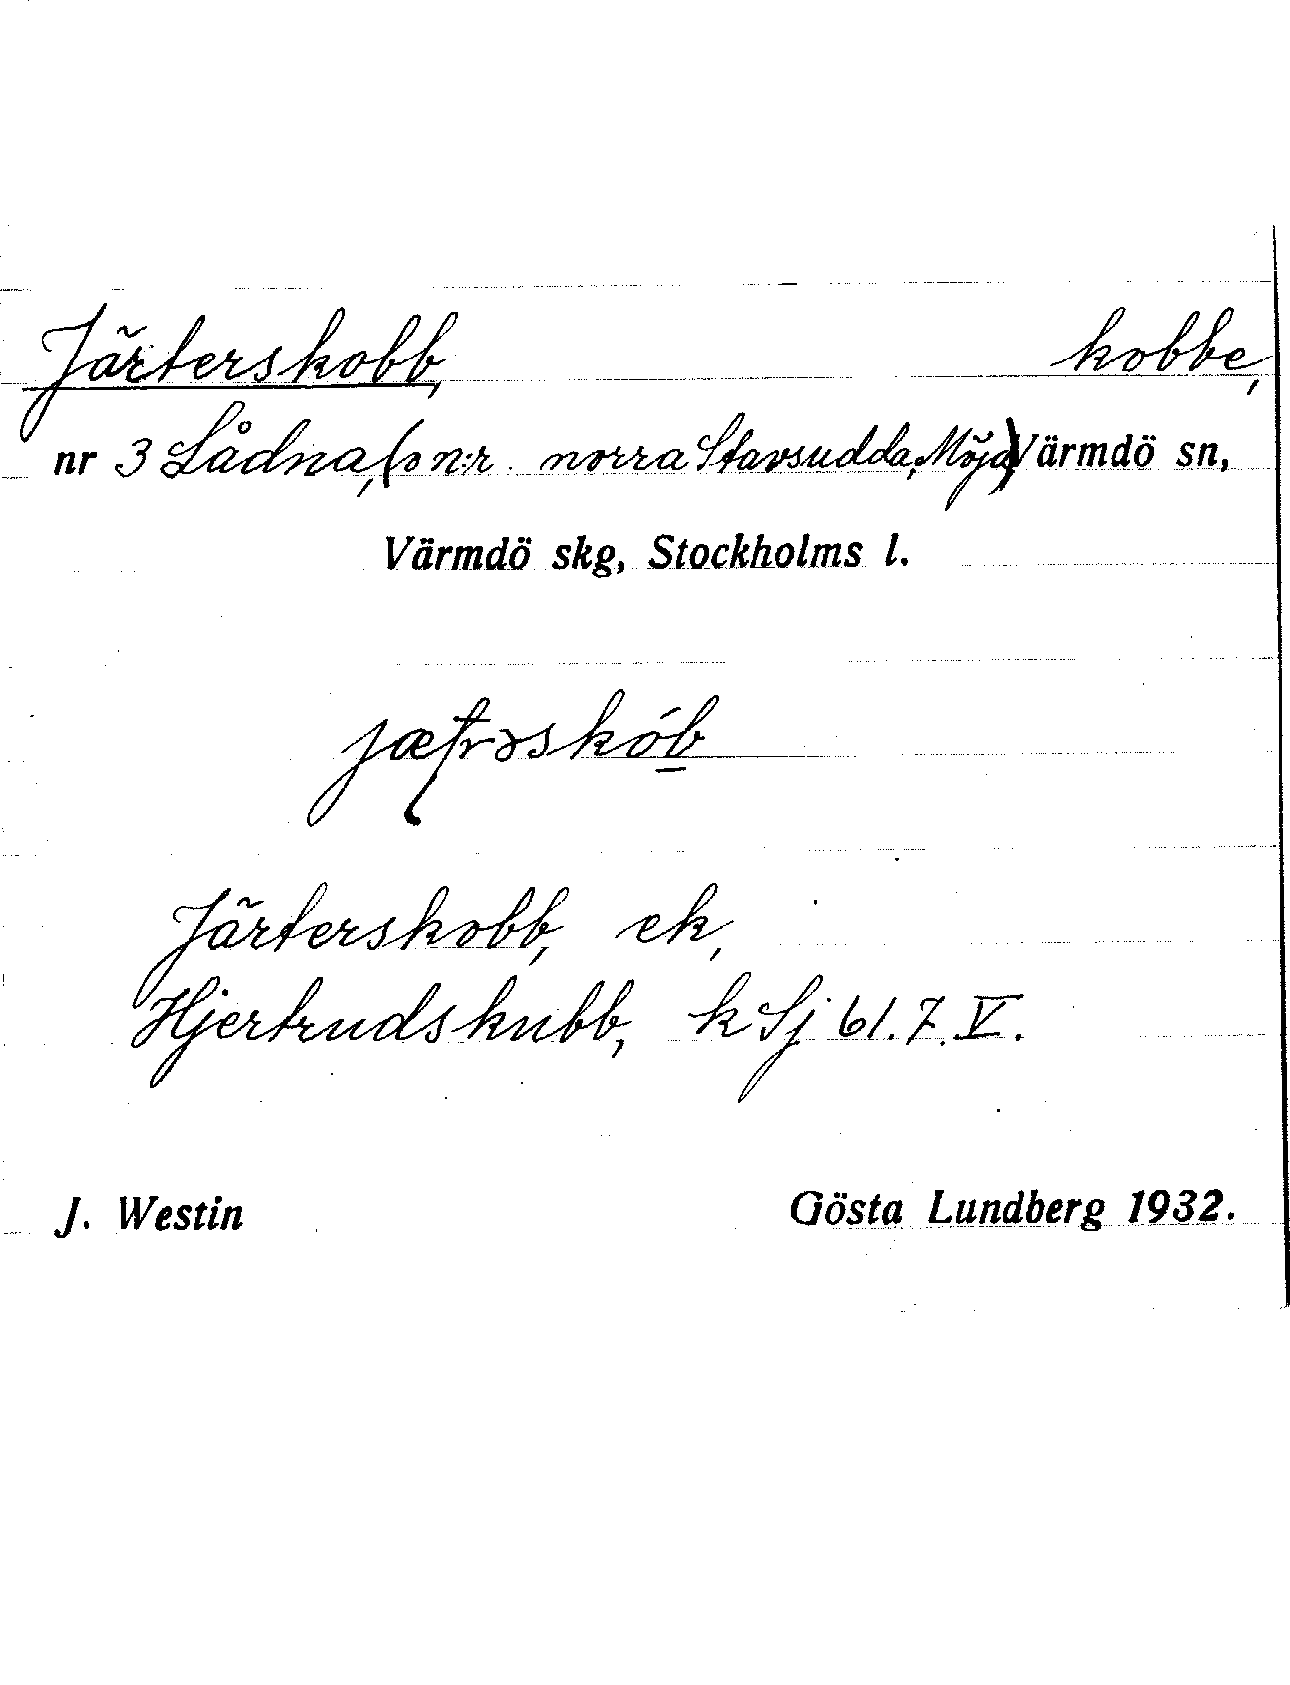 Järterskobb, kobbe,
nr 3 Lådna, (o n:r norra Stavsudda, Möja) Värmdö sn,
Värmdö skg, Stockholms l.
Järterskobb, ek,
Hjertrudskubb, k Sj 61.7.V.
J. Westin Gösta Lundberg 1932.